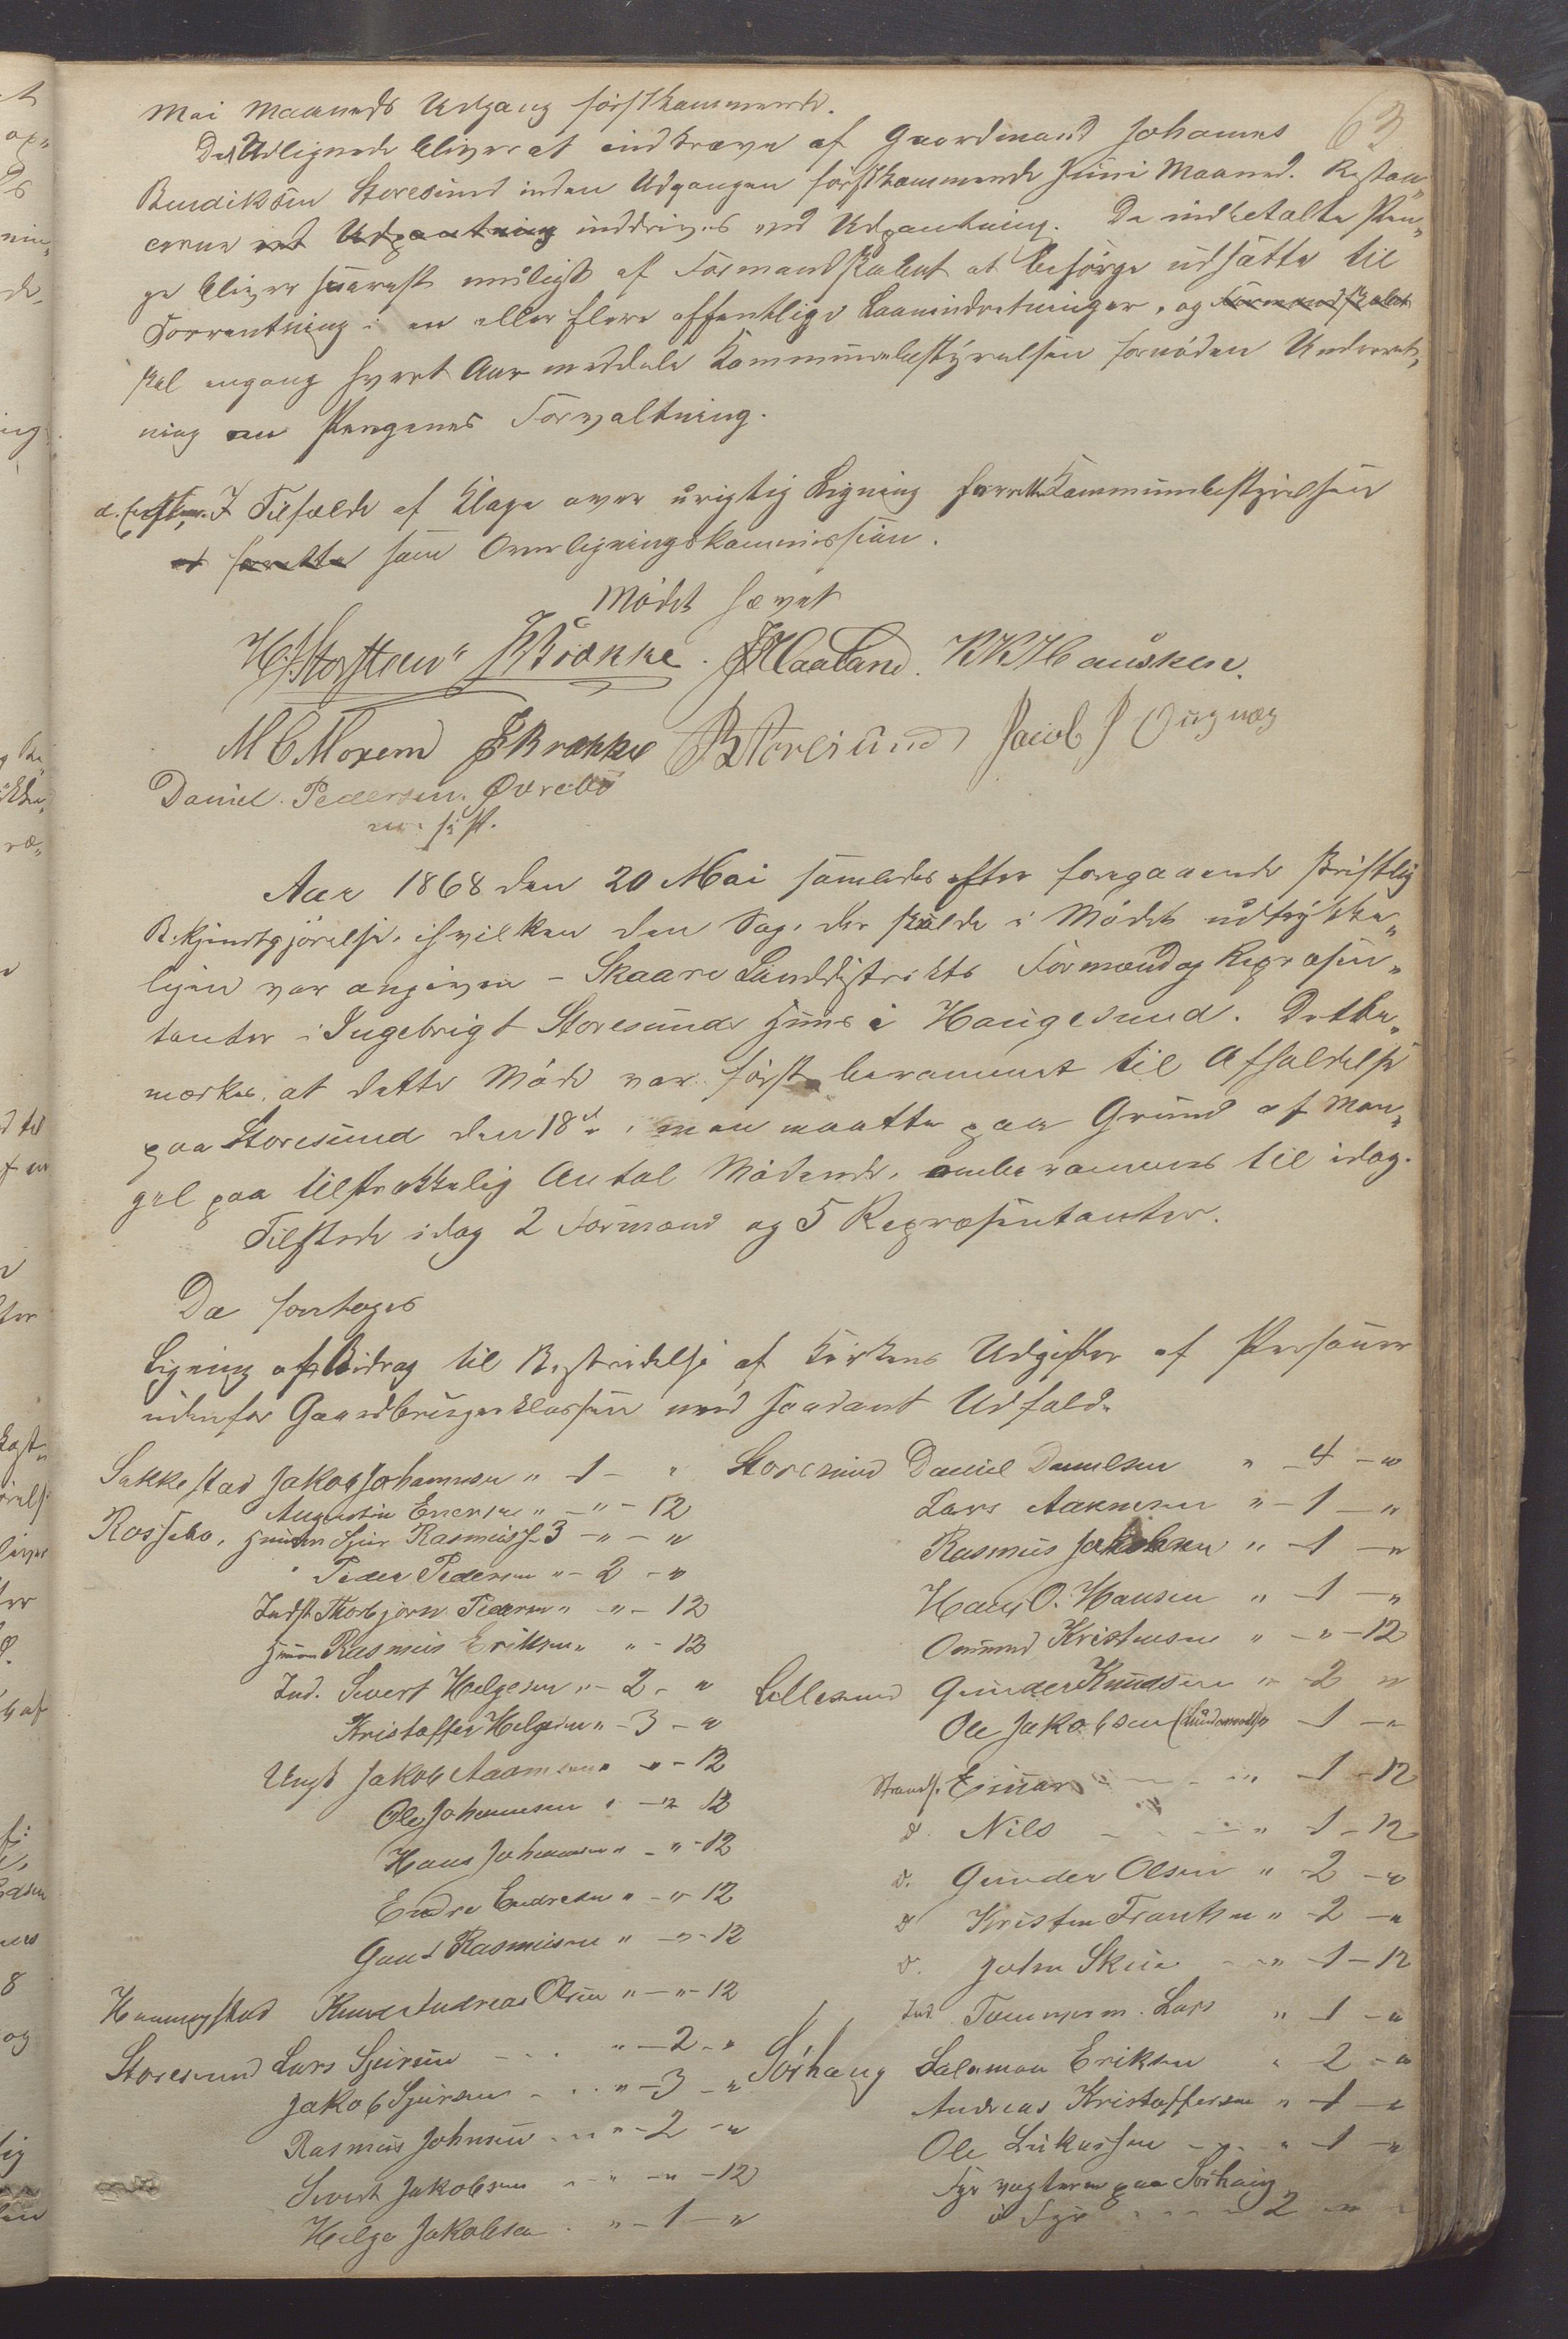 63
Mai Maaneds Udgang förstkommende.
Det Udlignede bliver at indkræve af Gaardmand Johannes
Bendiksen Storesund inden Udgangen förstkommende Juni Maaned. Restan„
cerne ved Udpantning inddrives ved Udpantning. De indbetalte Pen„
ge bliver snarest muligst af Formandskabet at besörge udsatte til
Forrentning i en eller flere offentlige Laanindretninger, og Formandskabet
skal engang hvert Aar meddele Kommunebestyrelsen fornöden Underret„
ning om Pengenes Forvaltning.
I Tilfælde af Klage over urigtig Ligning forrette Kommunebestyrelsen
at forrette som Overligningskommission.
Mödet hævet
H. Storsteen K Brække. J Haaland. K K Hausken.
M C Moxem E Brække B Storesund Jacob J Ougnæy
Daniel Pedersen Øvrebö
m. f. P.
Aar 1868 den 20 Mai samledes efter foregaaende skriftlig
Bekjendtgjörelse, i hvilken den Sag, der skulde i Mödet udtrykke„
ligen var angiven – Skaare Landdistrikts Formænd og Repræsen„
tanter i Ingebrigt Storesunds Huus i Haugesund. Det be„
mærkes, at dette Möde var först berammet til Afholdelse
paa Storesund den 18de, men maatte paa Grund af Man„
gel paa tilstrækkelig Antal Mödende, omberammes til idag.
Tilstede idag 2 Formænd og 5 Repræsentanter.
Da foretoges
Ligning af Bidrag til Bestridelse af Kirkens Udgifter af Personer
udenfor Gaardbrugerklassen med saadant Udfald.
Sakkestad Jakob Johannesen " – 1 – "
Augustin Ericksen " – " – 12
Rossebö, Huusm Sjur Rasmuss. 3 – " – "
" Peder Pedersen " – 2 – "
Indst Thorbjörn Pedersen " – " – 12
Huusm Rasmus Eriksen " – " – 12
Ind. Sivert Helgesen " – 2 – "
Kristoffer Helgesen " – 3 – "
Ungk Jakob Aadnesen " – " – 12
Ole Johannesen " – " 12
Hans Johannesen " – " – 12
Endre Endresen " – " – 12
Gaut Rasmussen " – " – 12
Haavigstad Knud Andreas Olsen " – " – 12
Storesund Lars Sjursen – – " – 2 – "
Jakob Sjursen – – " – 3 – "
Rasmus Johnsen – – " – 2 – "
Sivert Jakobsen – – " – " – 12
Helge Jakobsen – " – 1 – "
Storesund Daniel Danielsen " – 4 – "
Lars Aanensen " – 1 – "
Rasmus Jakobsen " – 1 – "
Hans O. Hansen " – 1 – "
Omund Kristensen " – " – 12
Lillesund Gunder Knudsen " – 2 "
Ole Jakobsen " – 1 – "
Strands. Einar – – " – 1 – 12
d. Nils – – – " – 1 – 12
d. Gunder Olsen " – 2 – "
d Kristen Frantsen " – 2 – "
d. John Skeie – – " – 1 – 12
Ind. Tömmerm. Lars " – 1 – "
Sörhaug Salamon Eriksen " 2 – "
Andreas Kristoffersen " – 1 – "
Ole Lukassen – – " – 1 – "
Fyrvogteren paa Sörhaug
Fyr – – – 2 – "